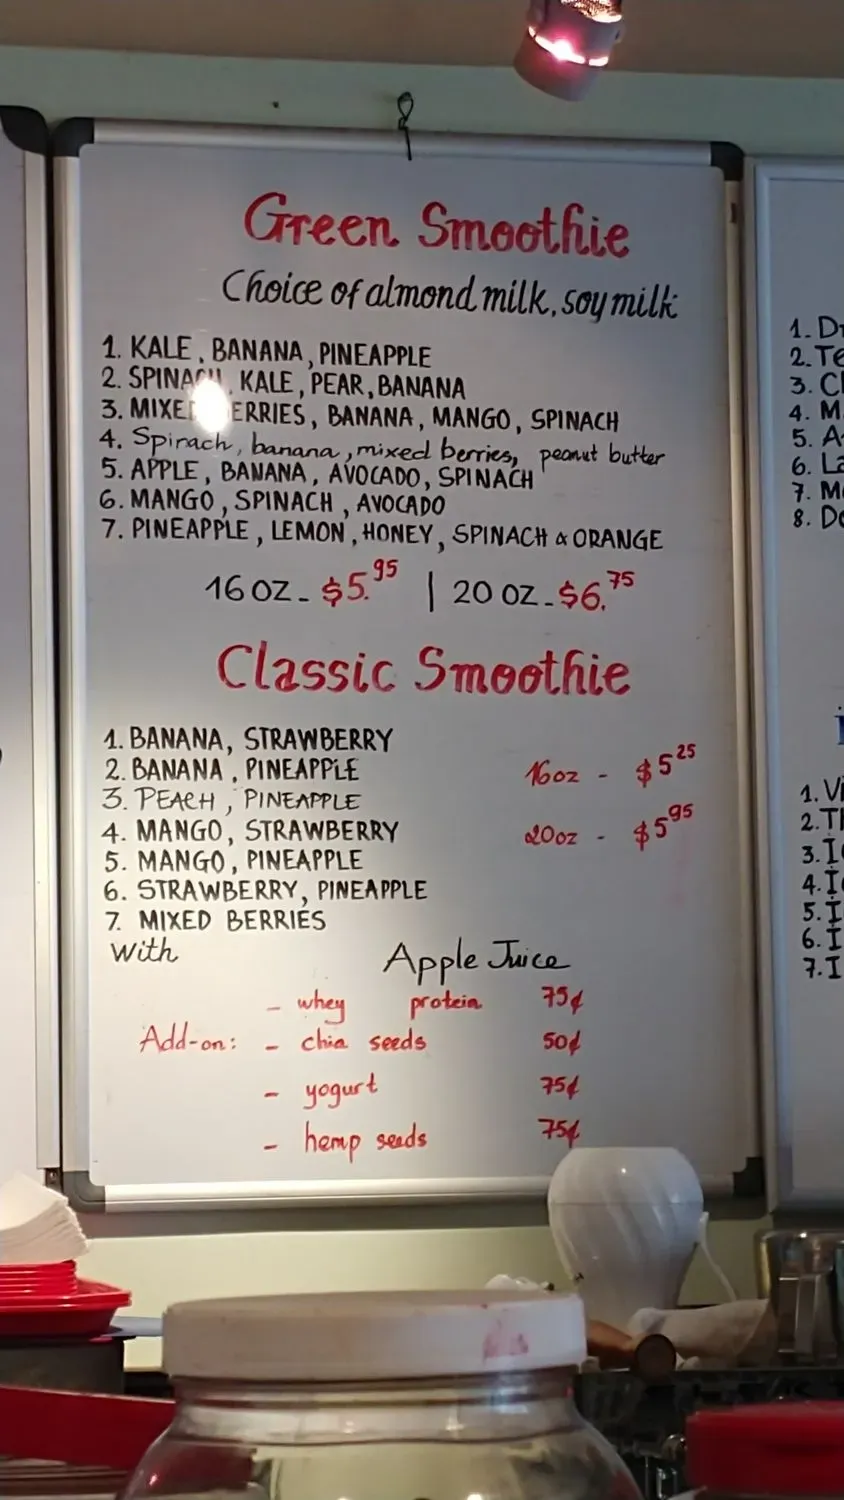 Green Smoothie
Choice of almond milk, soy milk
1. KALE, BANANA, PINEAPPLE
2. SPINACH, KALE, PEAR, BANANA
3. MIXED BERRIES, BANANA, MANGO, SPINACH
4. Spinach, banana, mixed berries, peanut butter
5. APPLE, BANANA, AVOCADO, SPINACH
6. MANGO, SPINACH, AVOCADO
7. PINEAPPLE, LEMON, HONEY, SPINACH & ORANGE
16 OZ - $5.95 | 20 OZ - $6.75
Classic Smoothie
1. BANANA, STRAWBERRY
2. BANANA, PINEAPPLE
3. PEACH, PINEAPPLE
4. MANGO, STRAWBERRY
5. MANGO, PINEAPPLE
6. STRAWBERRY, PINEAPPLE
7. MIXED BERRIES
16oz - $5 25
20oz - $5 95
With Apple Juice
Add-on:
- whey protein 75¢
- chia seeds 50¢
- yogurt 75¢
- hemp seeds 75¢